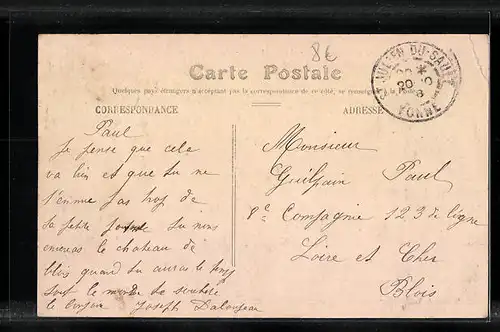 8€
Carte Postale
Quelques pays étrangers n'acceptant pas la correspondance de ce côté, se renseigner à la Poste
CORRESPONDANCE
ADRESSE
ST JULIEN-DU-SAULT
20
YONNE
Paul
Je pense que cela
va bien et que tu ne
t'ennue pas trop de
ta petite tu nous
enveras le chateau de
blois quand tu auras le temps
tout le monde se
le Joseph
Monsieur
Paul
8e Compagnie 123 de ligne
Loire et Cher
Blois